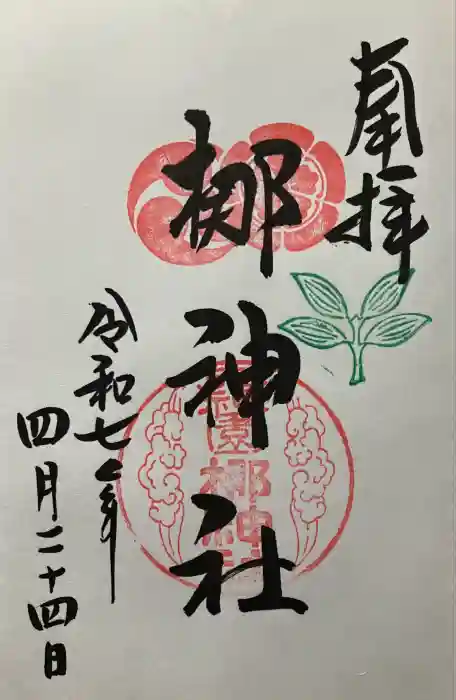 奉拝
梛神社
元祇園梛神社
令和七年
四月二十四日